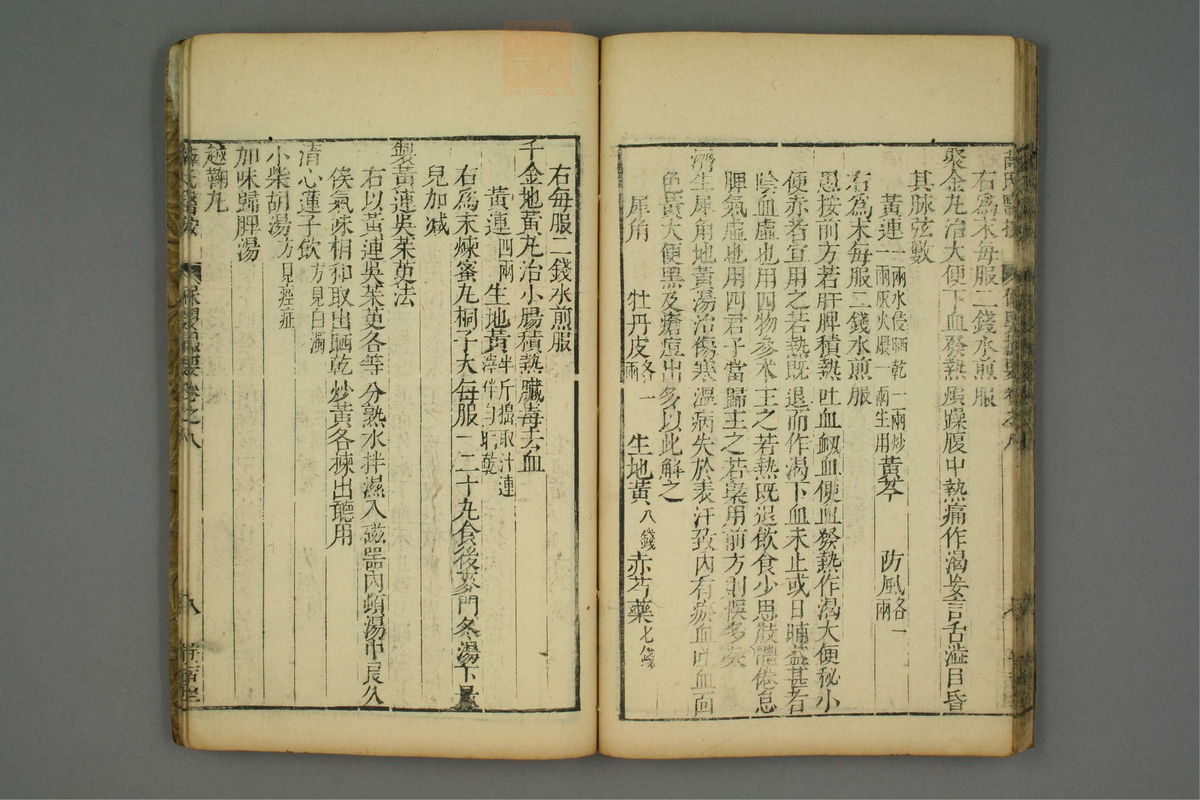 右爲末每服二錢水煎服
聚金丸治大便下血發熱煩躁腹中熱痛作渴妄言舌澁目昏
其脉弦數
黃連一兩水侵晒乾一兩炒一兩灰火煨一兩生用黃芩 防風各一兩
右爲末每服二錢水煎服
愚按前方若肝脾積熱吐血衂血便血發熱作渴大便秘小
便赤者宜用之若熱既退而作渴下血未止或日晡益甚者
陰血虛也用四物參朮主之若熱既退飲食少思肢體倦怠
脾氣虛也用四君子當歸主之若槩用前方則悞多矣
濟生犀角地黃湯治傷寒溫病失於表汗致内有瘀血吐血面
色黃大便黑及瘡痘出多以此解之
犀角 牡丹皮各一兩 生地黃八錢 赤芍藥七錢
右每服二錢水煎服
千金地黃丸治小腸積熱臟毒去血
黃連四兩 生地黃半斤搗取汁連滓伴勻晒乾
右爲末煉蜜丸桐子大每服一二十丸食後麥門冬湯下量
兒加減
製黃連吳茱萸法
右以黃連吳茱萸各等分熟水拌濕入磁器内頓湯中良久
俟氣疎相和取出晒乾炒黃各揀出聽用
清心蓮子飲方見白濁
小柴胡湯方見痙症
加味歸脾湯
越鞠丸
薛氏醫按 保嬰撮要 卷之八 八